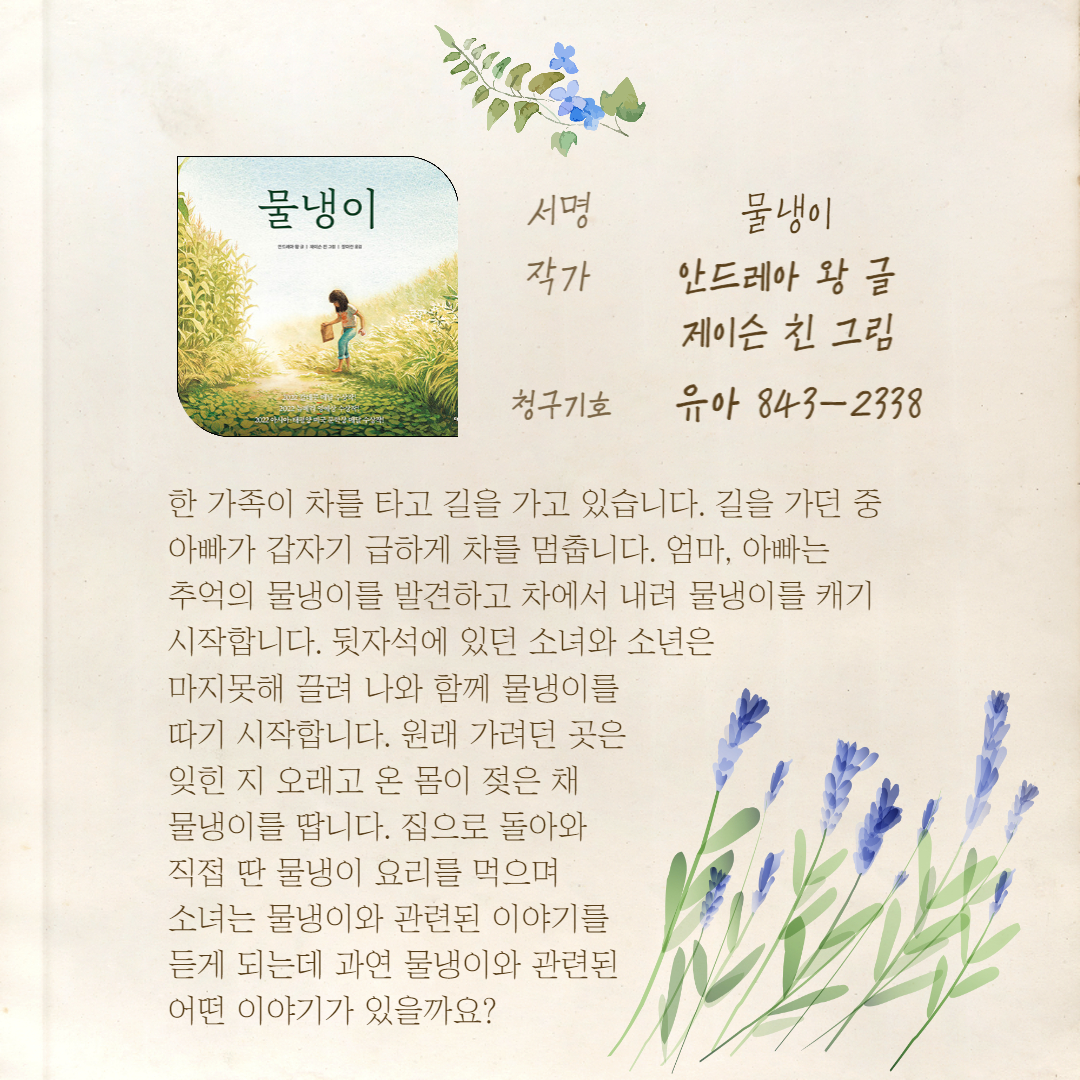 물냉이
안드레아 왕 글 | 제이슨 친 그림 |
2022
2022
2022 아시아·태평양 미국 문학상
서명 물냉이
작가 안드레아 왕 글
제이슨 친 그림
청구기호 유아 843-2338
한 가족이 차를 타고 길을 가고 있습니다. 길을 가던 중
아빠가 갑자기 급하게 차를 멈춥니다. 엄마, 아빠는
추억의 물냉이를 발견하고 차에서 내려 물냉이를 캐기
시작합니다. 뒷자석에 있던 소녀와 소년은
마지못해 끌려 나와 함께 물냉이를
따기 시작합니다. 원래 가려던 곳은
잊힌 지 오래고 온 몸이 젖은 채
물냉이를 땁니다. 집으로 돌아와
직접 딴 물냉이 요리를 먹으며
소녀는 물냉이와 관련된 이야기를
듣게 되는데 과연 물냉이와 관련된
어떤 이야기가 있을까요?